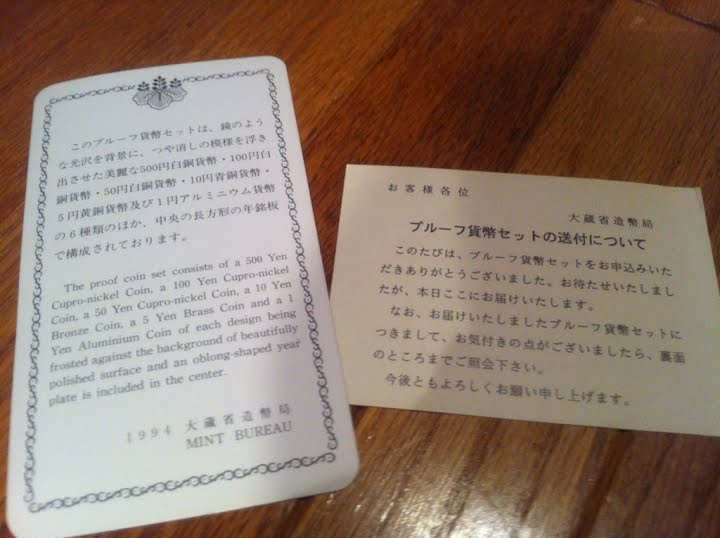 このプルーフ貨幣セットは、鏡のよう
な光沢を背景に、つや消しの模様を浮き
出させた美麗な500円白銅貨幣・100円白
銅貨幣・50円白銅貨幣・10円青銅貨幣・
5円黄銅貨幣及び1円アルミニウム貨幣
の6種類のほか、中央の長方形の年銘板
で構成されております。
The proof coin set consists of a 500 Yen
Cupro-nickel Coin, a 100 Yen Cupro-nickel
Coin, a 50 Yen Cupro-nickel Coin, a 10 Yen
Bronze Coin, a 5 Yen Brass Coin and a 1
Yen Aluminium Coin of each design being
frosted against the background of beautifully
polished surface and an oblong-shaped year
plate is included in the center.
1994 大蔵省造幣局
MINT BUREAU
お客様各位
大蔵省造幣局
プルーフ貨幣セットの送付について
このたびは、プルーフ貨幣セットをお申込みいた
だきありがとうございました。お待たせいたしまし
たが、本日ここにお届けいたします。
なお、お届けいたしましたプルーフ貨幣セットに
つきまして、お気付きの点がございましたら、裏面
のところまでご照会下さい。
今後ともよろしくお願い申し上げます。